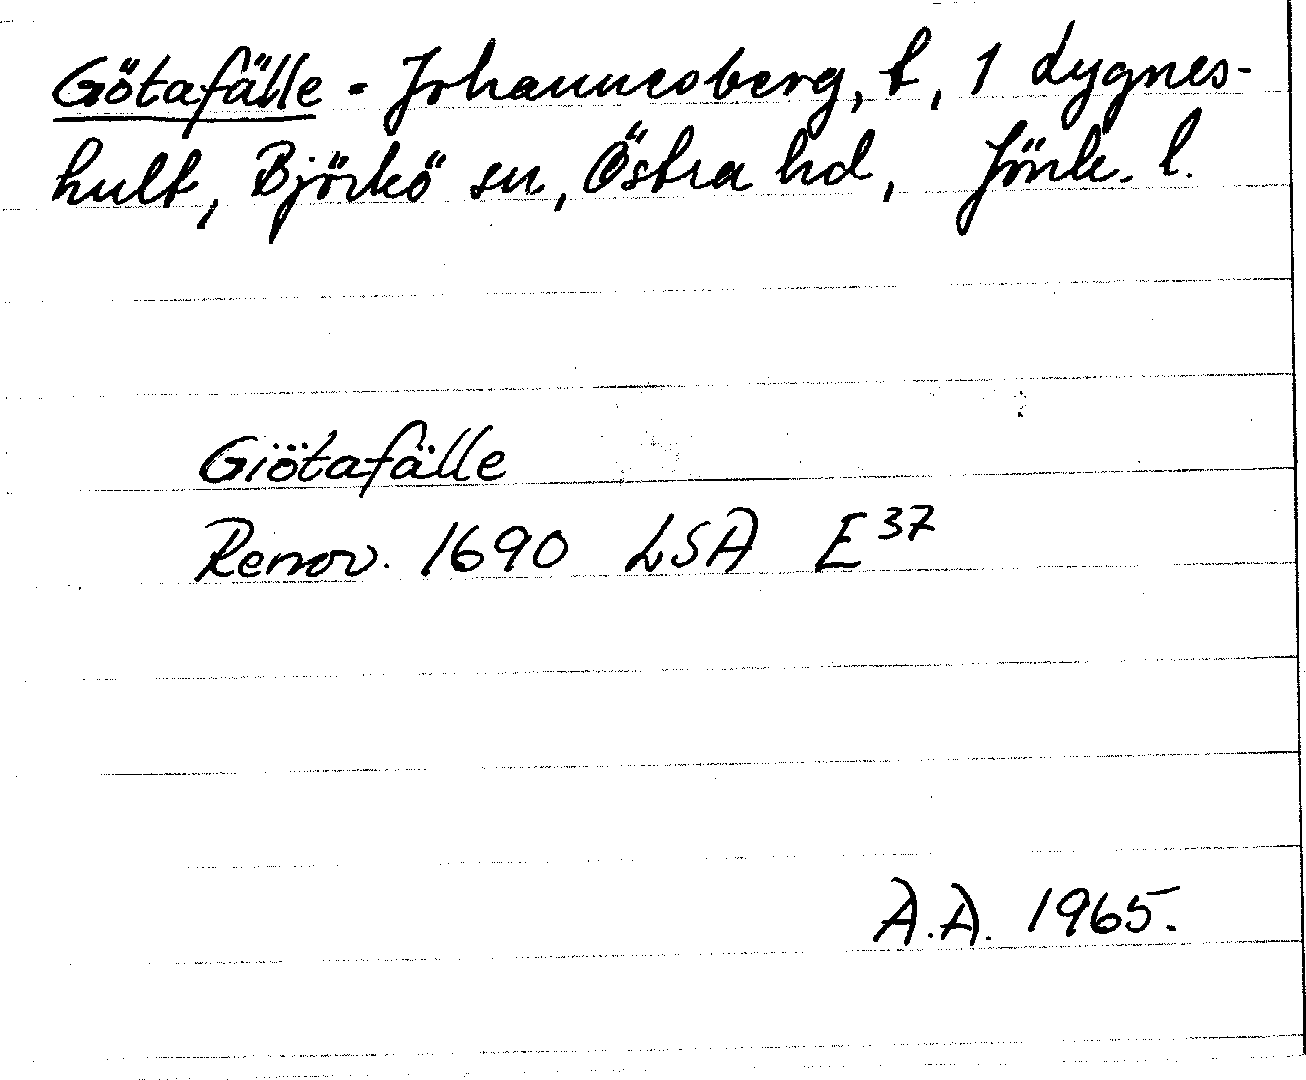 Götafälle = Johannesberg, t, 1 Lygnes-
hult, Björkö sn, Östra hd, Jönk. l.
Giötafälle
Renov. 1690 LSA E³⁷
A.A. 1965.